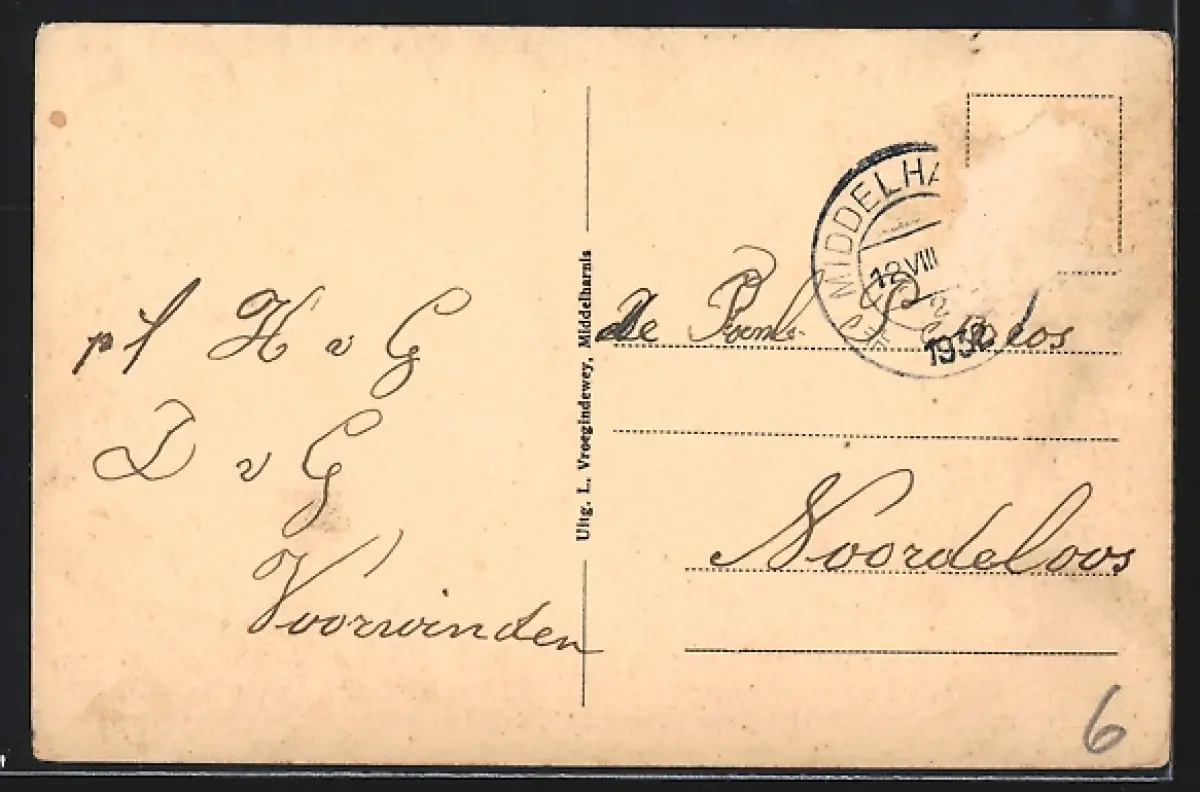 p f H v G
I v G
Voorwinden
Uitg. L. Vroegindewey, Middelharnis
MIDDELHA
12 VIII
1932
De
Noordeloos
6